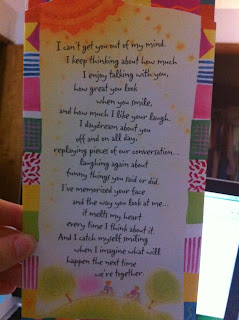 I can't get you out of my mind.
I keep thinking about how much
I enjoy talking with you,
how great you look
when you smile,
and how much I like your laugh.
I daydream about you
off and on all day,
replaying pieces of our conversation...
laughing again about
funny things you said or did.
I've memorized your face
and the way you look at me...
it melts my heart
every time I think about it.
And I catch myself smiling
when I imagine what will
happen the next time
we're together.